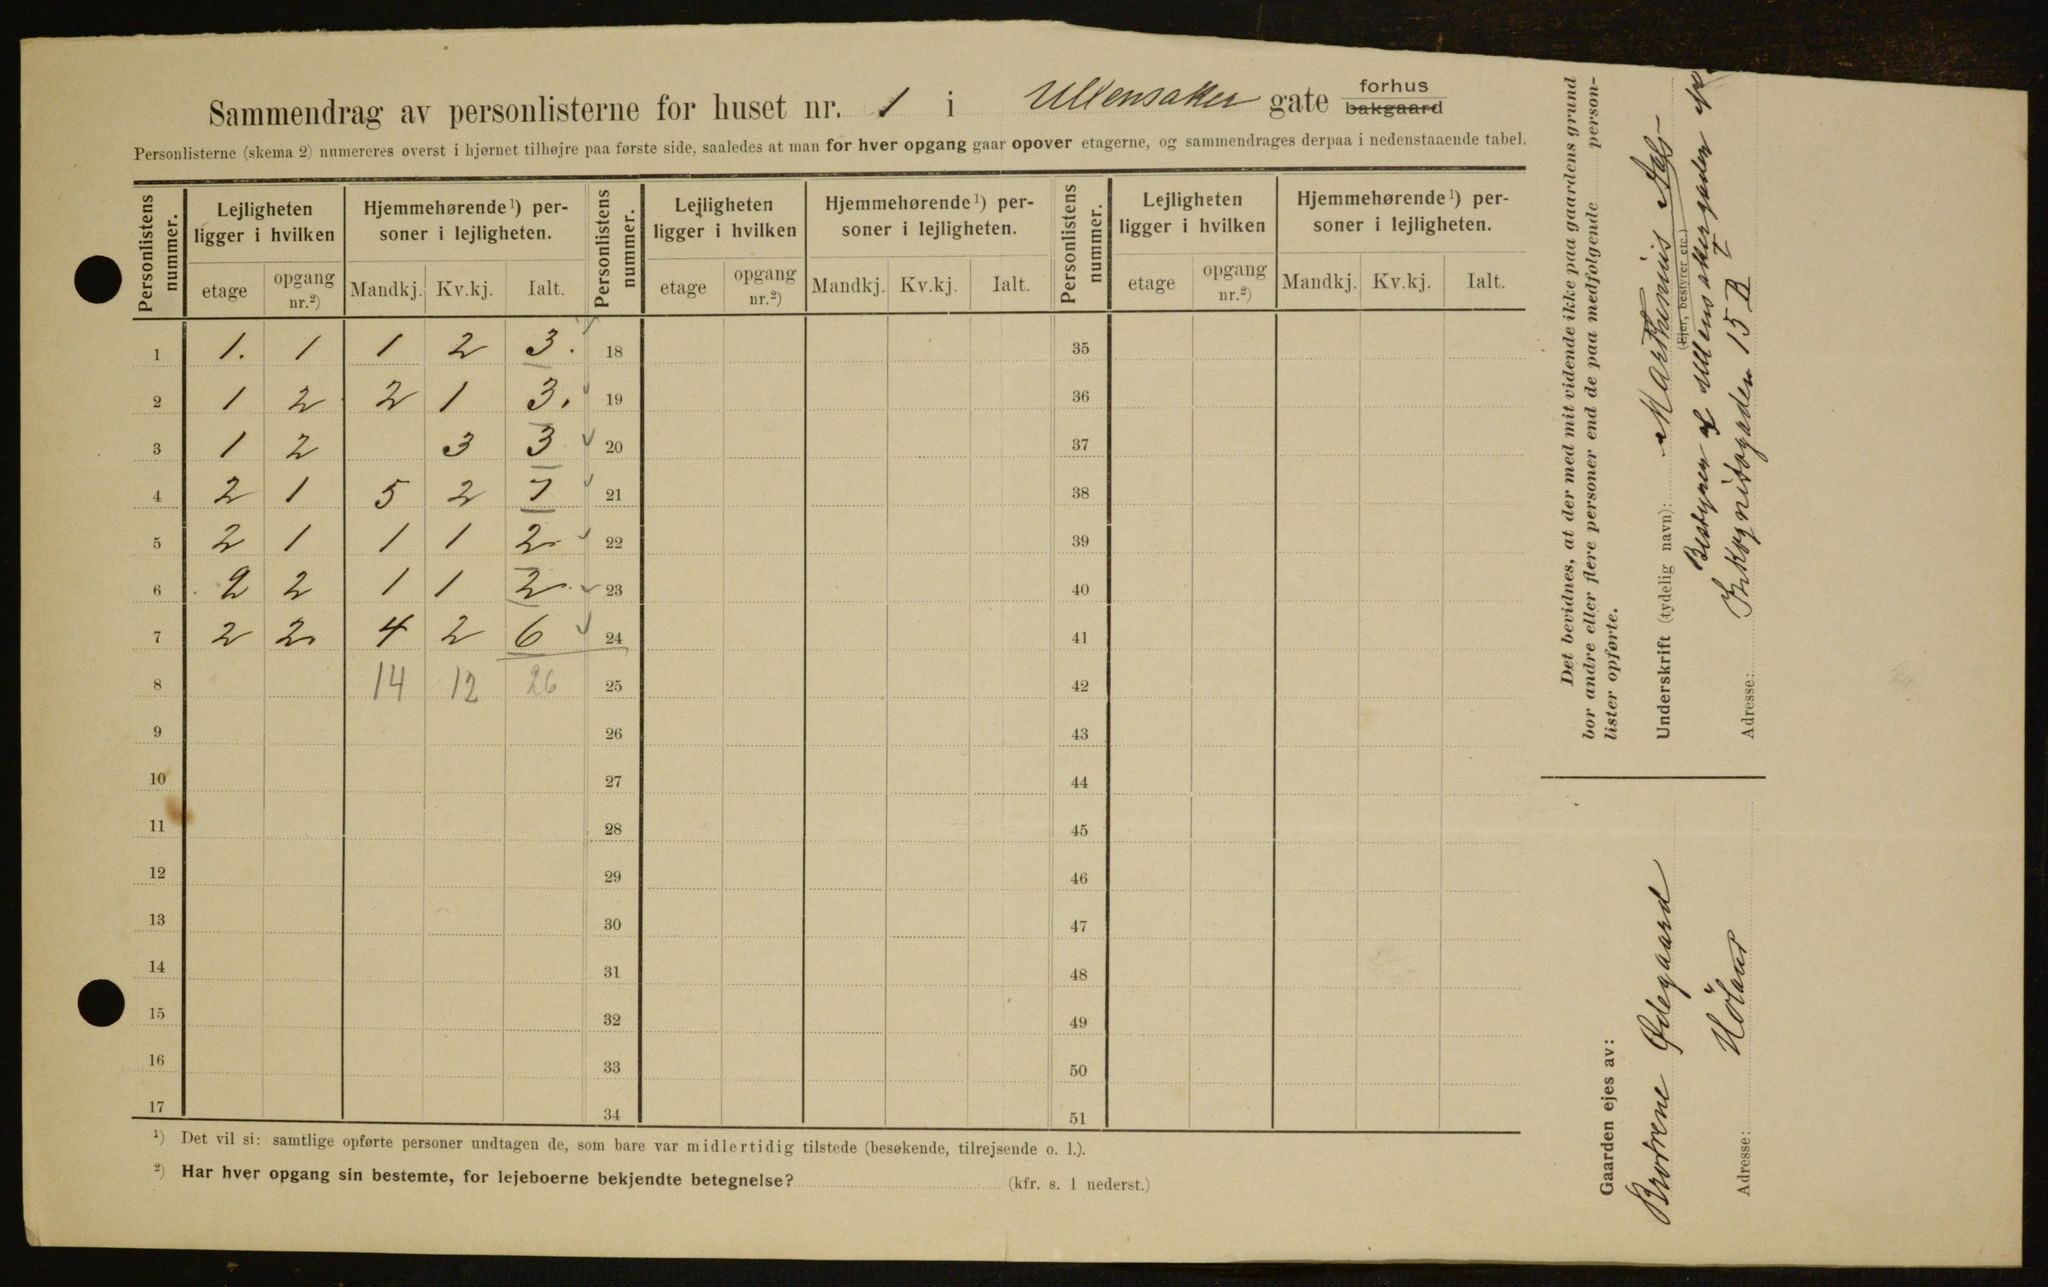 Sammendrag av personlisterne for huset nr. 1 i Ullensaker gate forhus bakgaard
Personlisterne (skema 2) numereres øverst i hjørnet tilhøjre paa første side, saaledes at man for hver opgang gaar opover etagerne, og sammendrages derpaa i nedenstaaende tabel.
Personlistens nummer. Lejligheten ligger i hvilken Hjemmehørende¹) personer i lejligheten. Personlistens nummer. Lejligheten ligger i hvilken Hjemmehørende¹) personer i lejligheten. Personlistens nummer. Lejligheten ligger i hvilken Hjemmehørende¹) personer i lejligheten.
etage opgang nr.²) Mandkj. Kv.kj. Ialt. etage opgang nr.²) Mandkj. Kv.kj. Ialt. etage opgang nr.²) Mandkj. Kv.kj. Ialt.
1 1. 1 1 2 3. 18 35
2 1 2 2 1 3. 19 36
3 1 2 3 3 20 37
4 2 1 5 2 7 21 38
5 2 1 1 1 2 22 39
6 2 2 1 1 2 23 40
7 2 2 4 2 6 24 41
8 14 12 26 25 42
9 26 43
10 27 44
11 28 45
12 29 46
13 30 47
14 31 48
15 32 49
16 33 50
17 34 51
¹) Det vil si: samtlige opførte personer undtagen de, som bare var midlertidig tilstede (besøkende, tilrejsende o. l.).
²) Har hver opgang sin bestemte, for lejeboerne bekjendte betegnelse? (kfr. s. 1 nederst.)
Det bevidnes, at der med mit vidende ikke paa gaardens grund
bor andre eller flere personer end de paa medfølgende personlister opførte.
Underskrift (tydelig navn): Marthinius
(Ejer, bestyrer etc.)
Bestyrer af Ullensakergaden
Adresse: Inkognitogaden 15 B
Gaarden ejes av:
Brødrene Ødegaard
Adresse: Høland